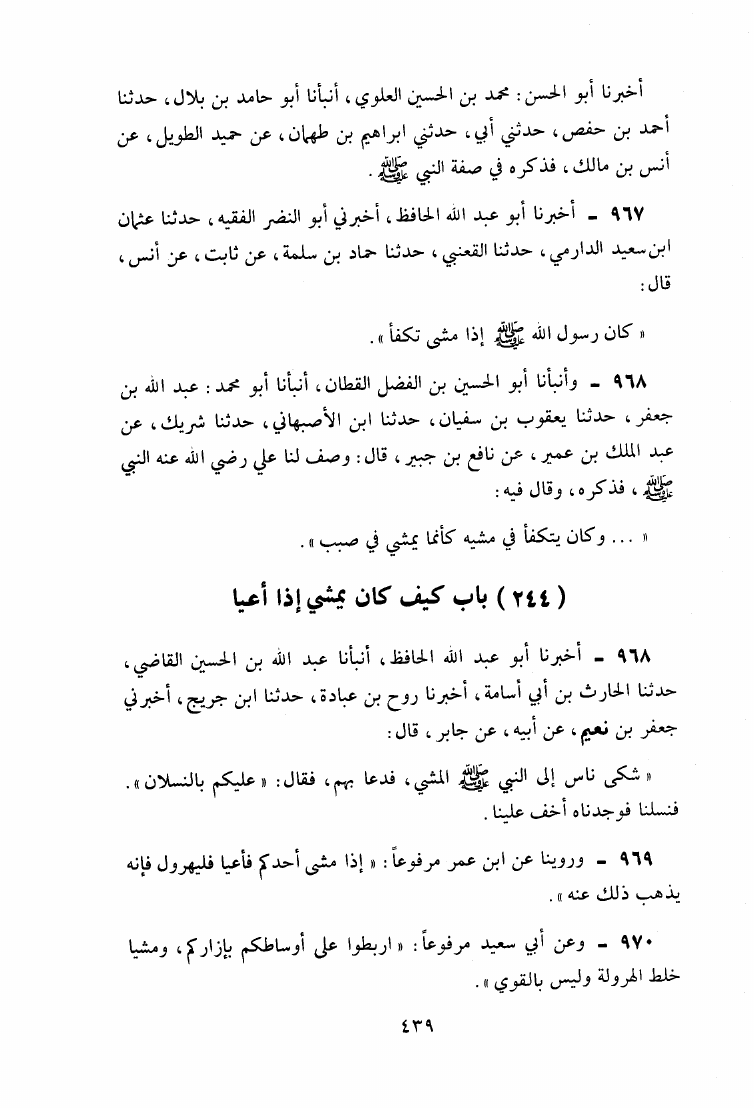 أخبرنا أبو الحسن: محمد بن الحسين العلوي، أنبأنا أبو حامد بن بلال، حدثنا
أحمد بن حفص، حدثني أبي، حدثني ابراهيم بن طهمان، عن حميد الطويل، عن
أنس بن مالك، فذكره في صفة النبي ﷺ.
٩٦٧ - أخبرنا أبو عبد الله الحافظ، أخبرني أبو النضر الفقيه، حدثنا عثمان
ابن سعيد الدارمي، حدثنا القعنبي، حدثنا حماد بن سلمة، عن ثابت، عن أنس،
قال:
« كان رسول الله ﷺ إذا مشى تكفأ ».
٩٦٨ - وأنبأنا أبو الحسين بن الفضل القطان، أنبأنا أبو محمد: عبد الله بن
جعفر، حدثنا يعقوب بن سفيان، حدثنا ابن الأصبهاني، حدثنا شريك، عن
عبد الملك بن عمير، عن نافع بن جبير، قال: وصف لنا علي رضي الله عنه النبي
ﷺ، فذكره، وقال فيه:
« ... وكان يتكفأ في مشيه كأنما يمشي في صبب ».
(٢٤٤) باب كيف كان يمشي إذا أعيا
٩٦٨ - أخبرنا أبو عبد الله الحافظ، أنبأنا عبد الله بن الحسين القاضي،
حدثنا الحارث بن أبي أسامة، أخبرنا روح بن عبادة، حدثنا ابن جريج، أخبرني
جعفر بن نعيم، عن أبيه، عن جابر، قال:
« شكى ناس إلى النبي ﷺ المشي، فدعا بهم، فقال: « عليكم بالنسلان ».
فنسلنا فوجدناه أخف علينا.
٩٦٩ - وروينا عن ابن عمر مرفوعاً: « إذا مشى أحدكم فأعيا فليهرول فإنه
يذهب ذلك عنه ».
٩٧٠ - وعن أبي سعيد مرفوعاً: « اربطوا على أوساطكم بإزاركم، ومشيا
خلط الهرولة وليس بالقوي ».
٤٣٩